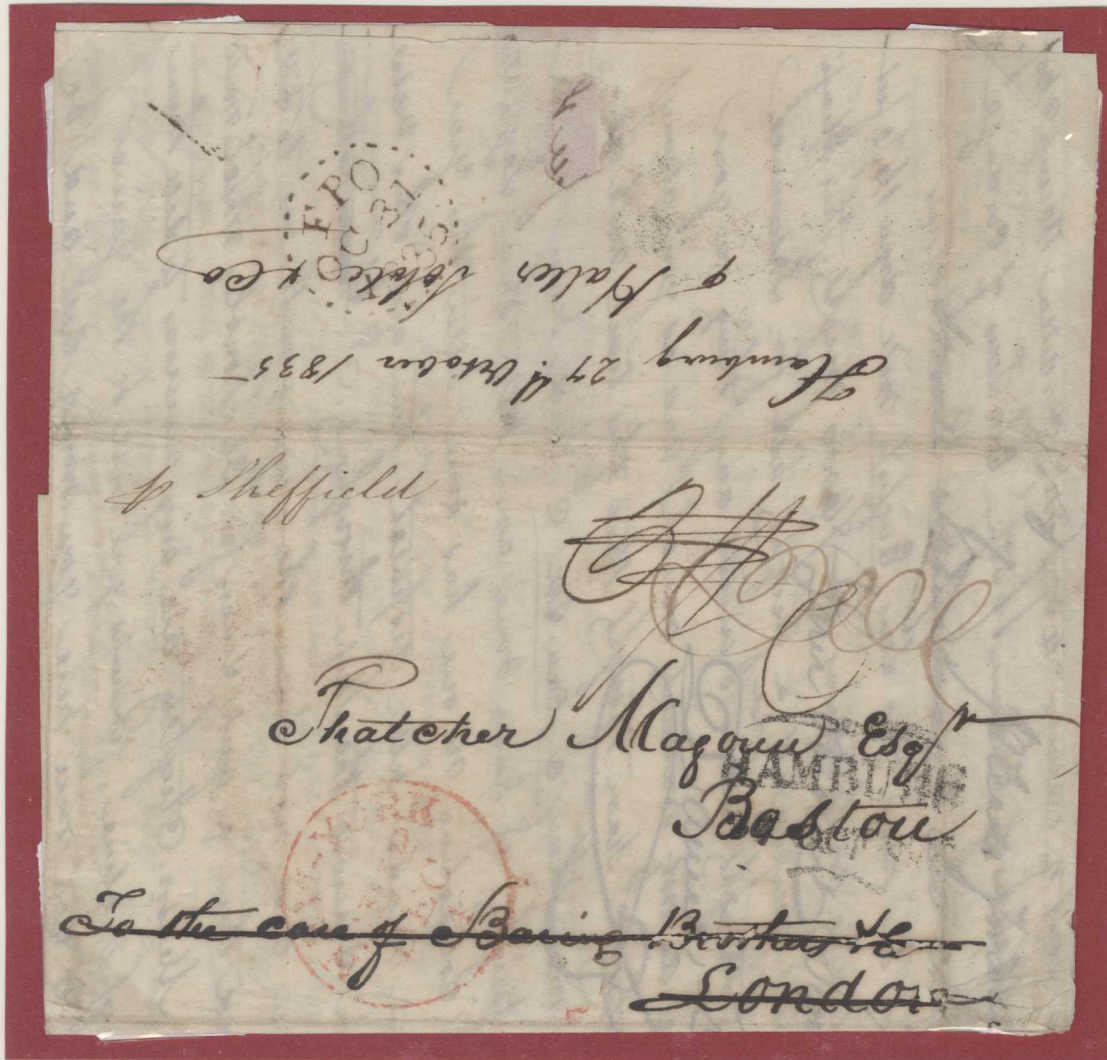 FPO
OC 31
1835
Hamburg 27th October 1835
& Co
p Sheffield
Thatcher Magoun Esqr
HAMBURG
Boston
NEW-YORK
To the care of Baring Brothers & Co
London